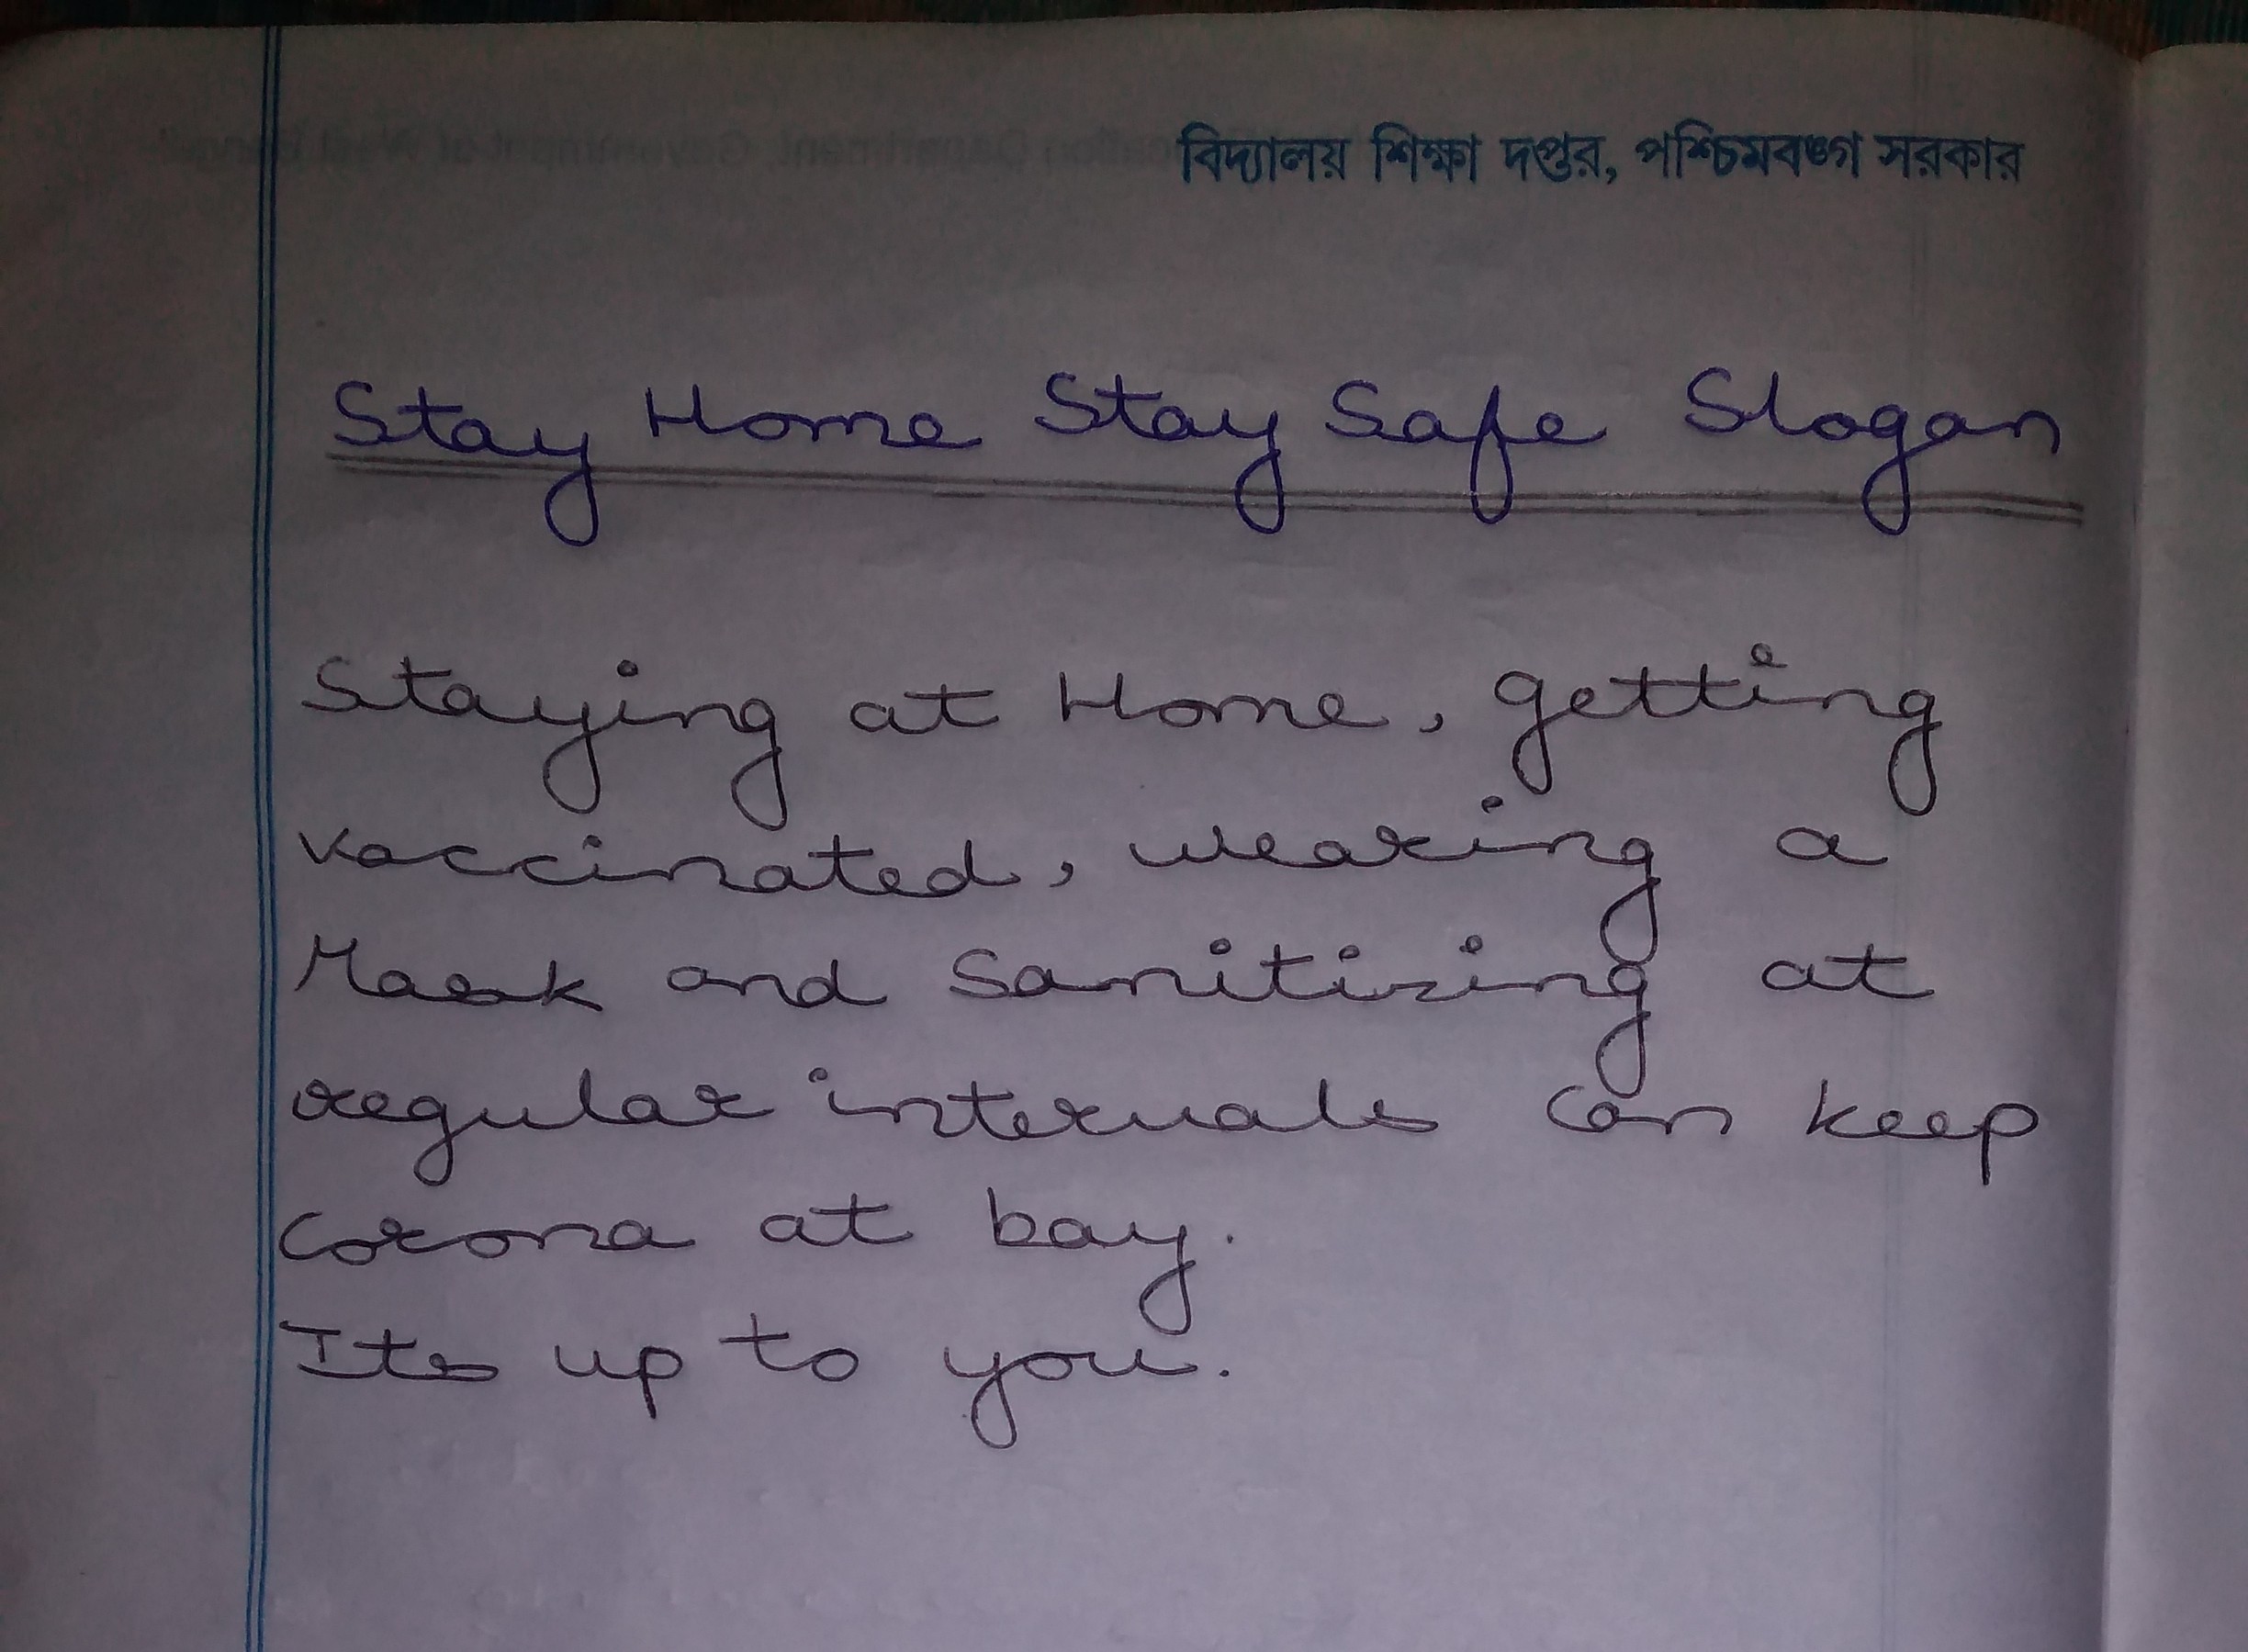 বিদ্যালয় শিক্ষা দপ্তর, পশ্চিমবঙ্গ সরকার
Stay Home Stay Safe Slogan
Staying at Home, getting
vaccinated, wearing a
Mask and Sanitizing at
regular intervals can keep
corona at bay.
Its up to you.